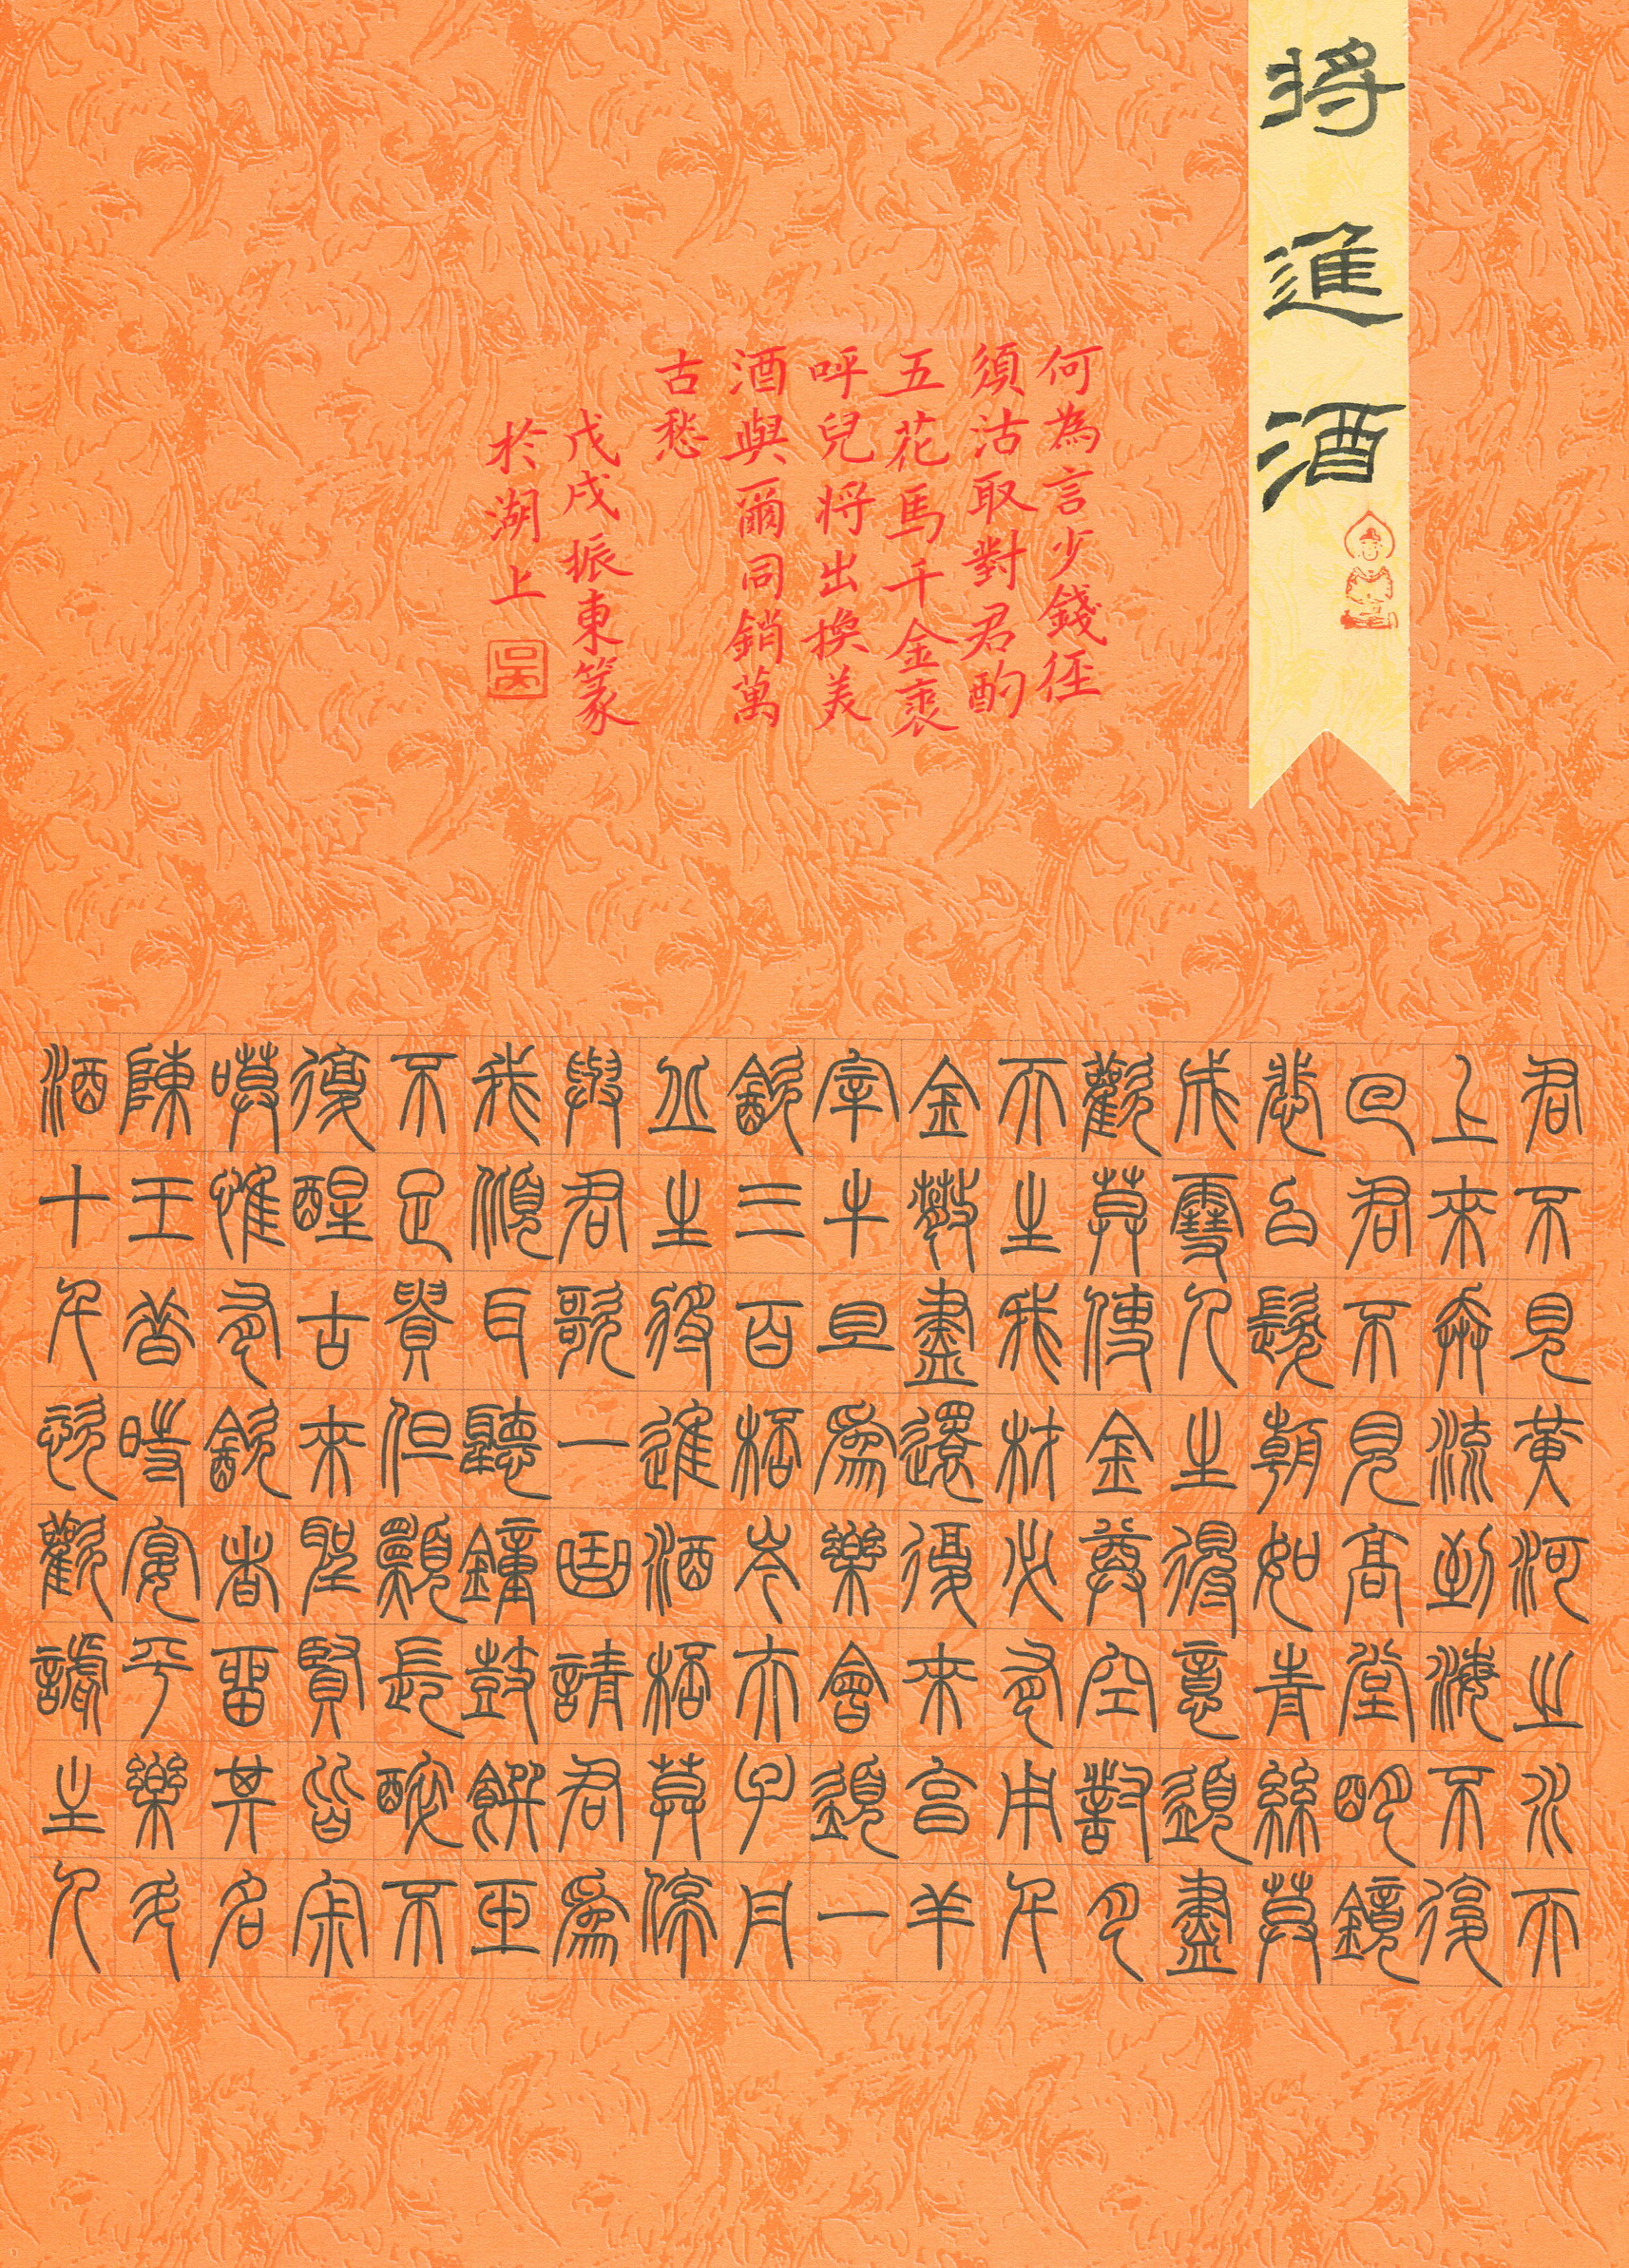 將進酒
君不見黃河之水天
上來奔流到海不復
回君不見高堂明鏡
悲白髮朝如青絲莫
成雪人生得意須盡
歡莫使金尊空對月
天生我材必有用千
金散盡還復來亨羊
宰牛且為樂會須一
飲三百桮岑夫子丹
丘生將進酒桮莫停
與君歌一曲請君為
我傾耳聽鐘鼓饌玉
不足貴但願長醉不
復醒古來聖賢皆寂
嗼惟有飲者留其名
陳王昔時宴平樂斗
酒十千恣歡謔主人
何為言少錢徑
須沽取對君酌
五花馬千金裘
呼兒將出換美
酒與爾同銷萬
古愁
戊戌振東篆
於湖上
吳